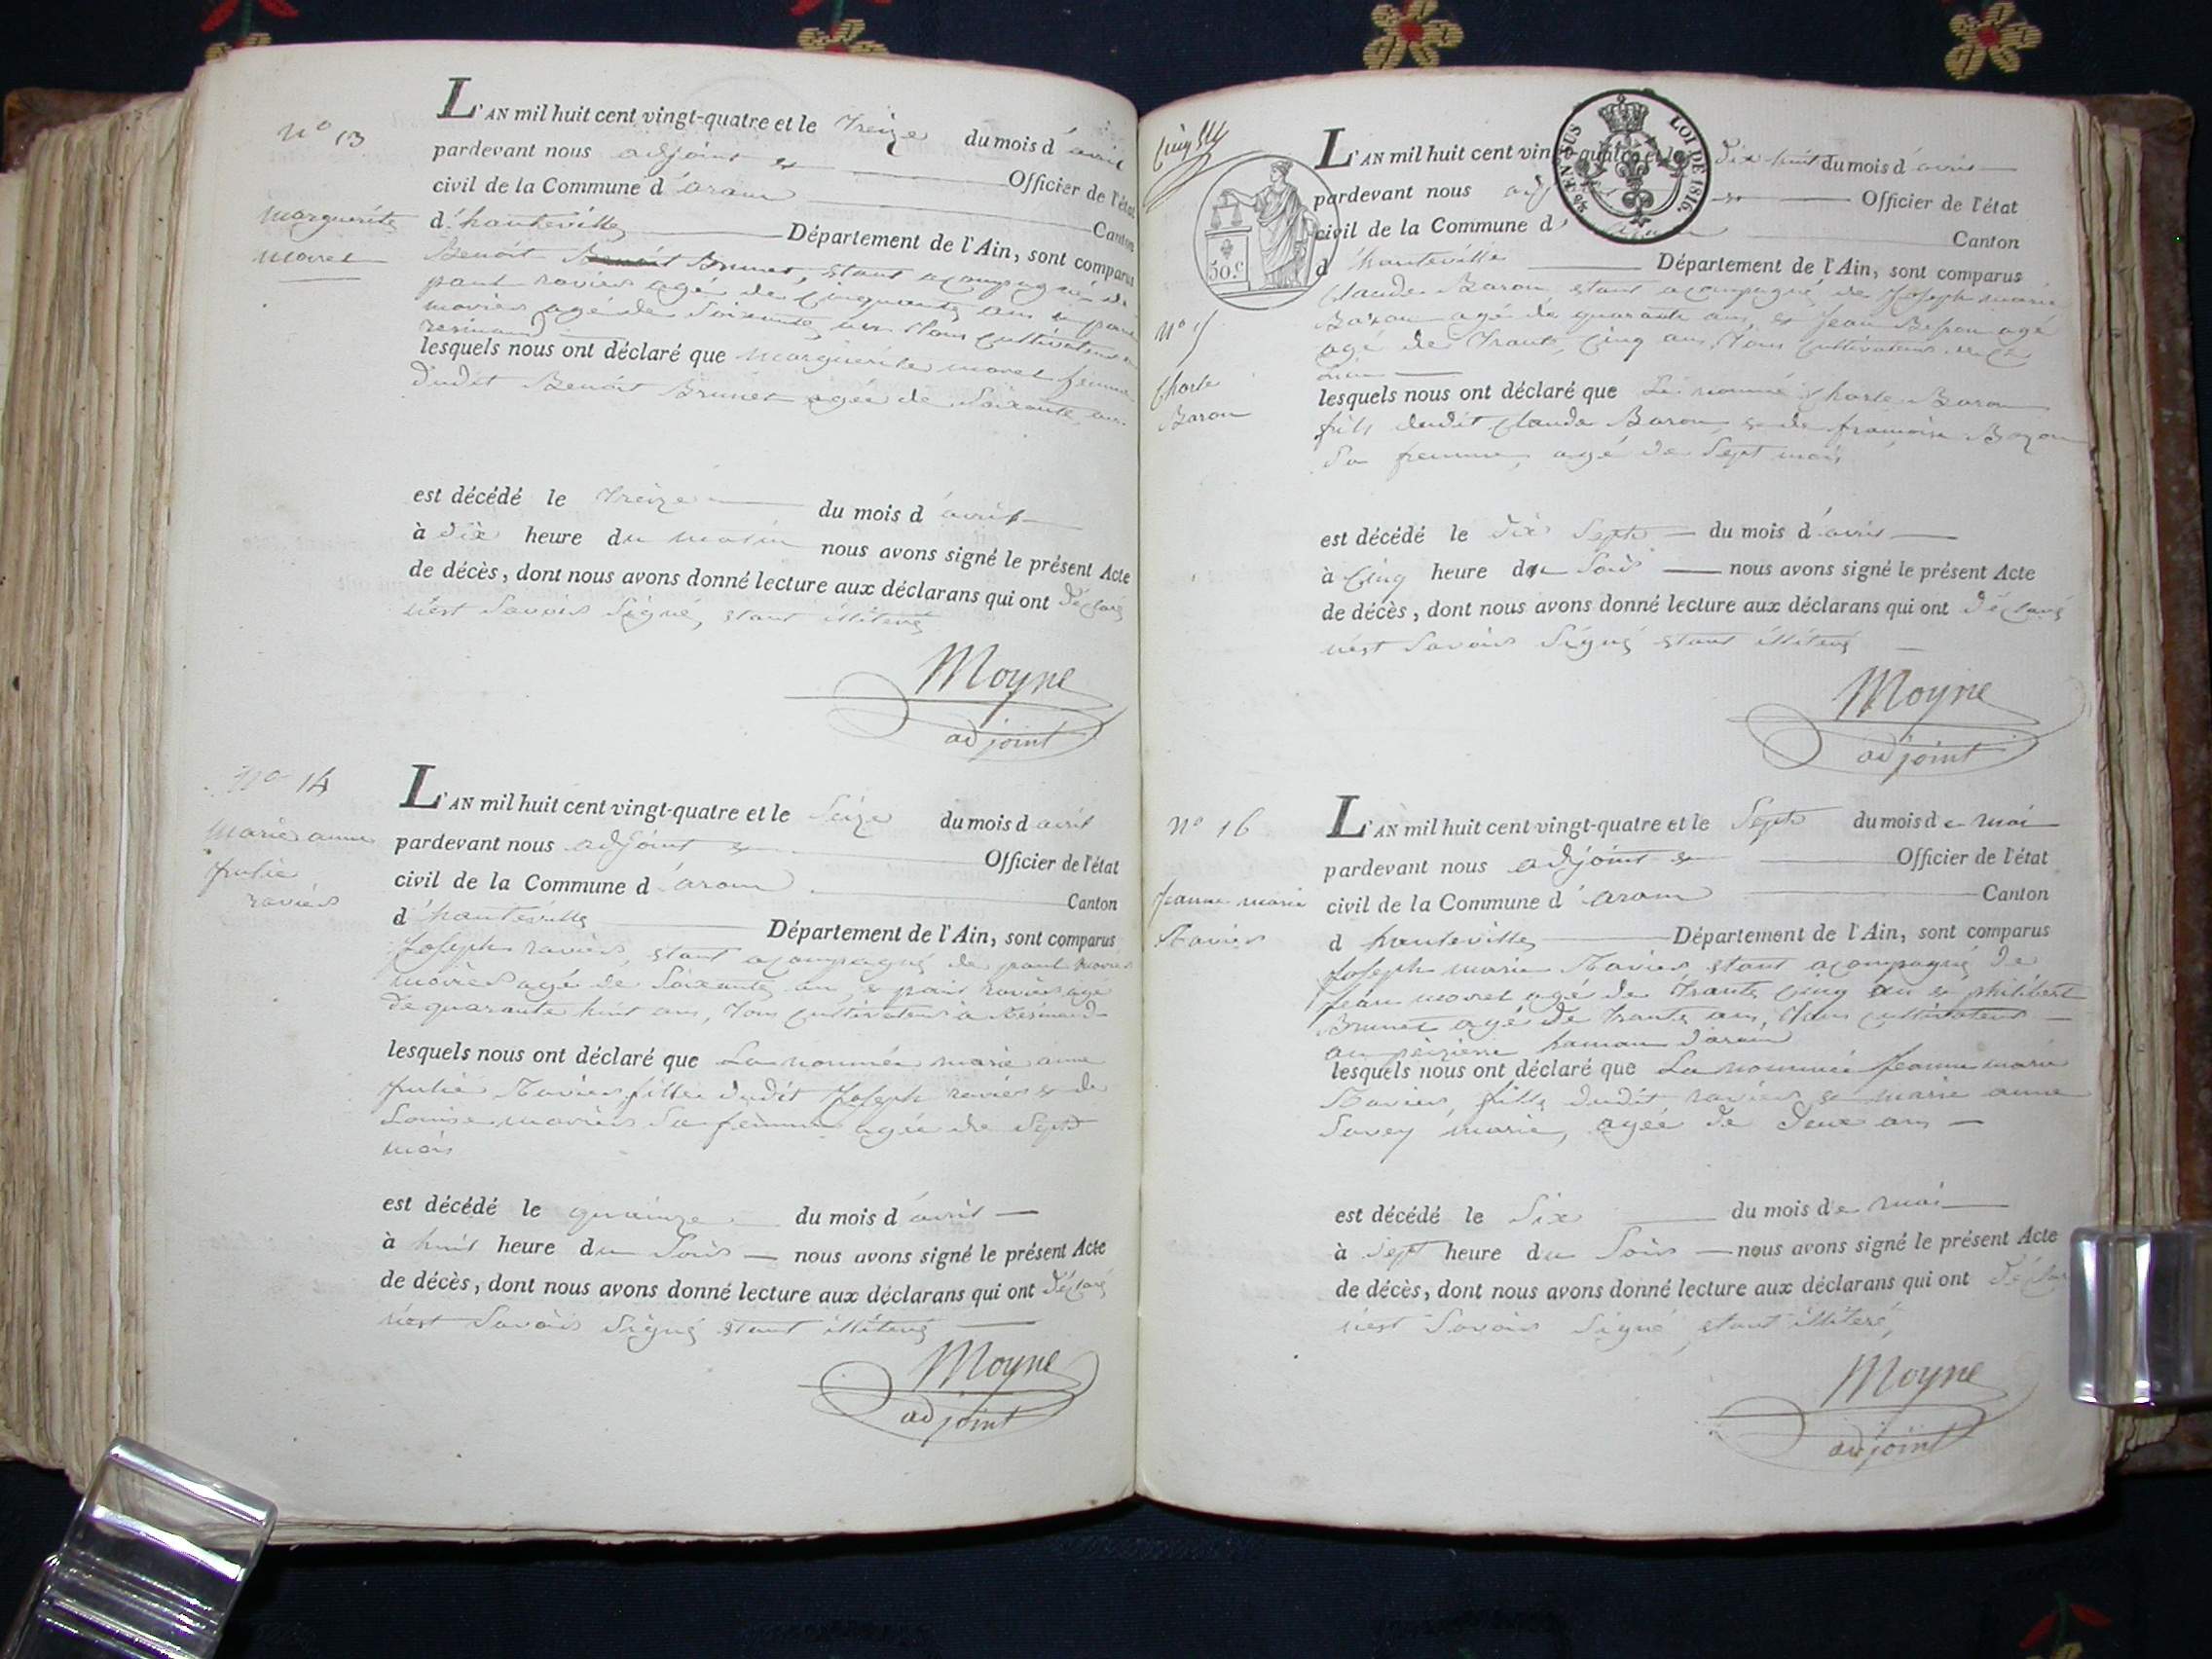 N° 13
marguerite
morel
L'AN mil huit cent vingt-quatre et le Treize du mois d'avril
pardevant nous adjoint et Officier de l'état
civil de la Commune d'aram Canton
d'hauteville Département de l'Ain, sont comparus
Benoit Brunet, étant acompagné de
paul ravier agé de Cinquante ans
agé de Soixante ans tous cultivateurs
lesquels nous ont déclaré que marguerite morel femme
dudit Benoit Brunet agée de Soixante ans
est décédé le treize du mois d'avril
à dix heure du matin nous avons signé le présent Acte
de décès, dont nous avons donné lecture aux déclarans qui ont déclaré
n'est Savoir Signé, étant illiteré
Moyne
adjoint
N° 14
Marie anne
julie
ravier
L'AN mil huit cent vingt-quatre et le Seize du mois d'avril
pardevant nous adjoint et Officier de l'état
civil de la Commune d'aram Canton
d'hauteville Département de l'Ain, sont comparus
Joseph ravier, étant acompagné de paul
agé de Soixante an, et ravier agé
de quarante huit ans, Tous cultivateurs à
lesquels nous ont déclaré que La nommée marie anne
julie Ravier fille dudit Joseph ravier et de
Louise Sa femme agée de Sept
mois
est décédé le quainze du mois d'avril
à huit heure du Soir nous avons signé le présent Acte
de décès, dont nous avons donné lecture aux déclarans qui ont déclaré
n'est Savoir Signé étant illiteré
Moyne
adjoint
LOI DE 1816.
50.c
N° 15
Charle
Baron
L'AN mil huit cent vingt-quatre et le dix huit du mois d'avril
pardevant nous adj et Officier de l'état
civil de la Commune d' Canton
d'hauteville Département de l'Ain, sont comparus
Claude Baron étant acompagné de Joseph marie
agé de quarante ans, et Jean agé
agé de Trante Cinq ans, Tous cultivateurs
lesquels nous ont déclaré que Le nommé Charle Baron
fils dudit Claude Baron et de francoise
Sa femme, agé de Sept mois
est décédé le dix Sept du mois d'avril
à Cinq heure du Soir nous avons signé le présent Acte
de décès, dont nous avons donné lecture aux déclarans qui ont déclaré
n'est Savoir Signé étant illiteré
Moyne
adjoint
N° 16
Jeanne marie
Ravier
L'AN mil huit cent vingt-quatre et le Sept du mois de mai
pardevant nous adjoint et Officier de l'état
civil de la Commune d'aram Canton
d'hauteville Département de l'Ain, sont comparus
Joseph marie Ravier étant acompagné de
jean morel agé de Trante Cinq an et philibert
Brunet agé de Trante ans, Tous cultivateurs
lesquels nous ont déclaré que La nommée Jeanne marie
Ravier, fille dudit ravier et marie anne
Savey marie, agée de deux ans
est décédé le Six du mois de mai
à Sept heure du Soir nous avons signé le présent Acte
de décès, dont nous avons donné lecture aux déclarans qui ont déclar
n'est Savoir Signé étant illiteré,
Moyne
adjoint